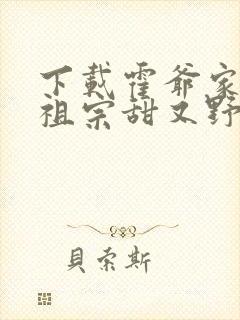 下載霍爺家
祖宗甜又野
貝索斯